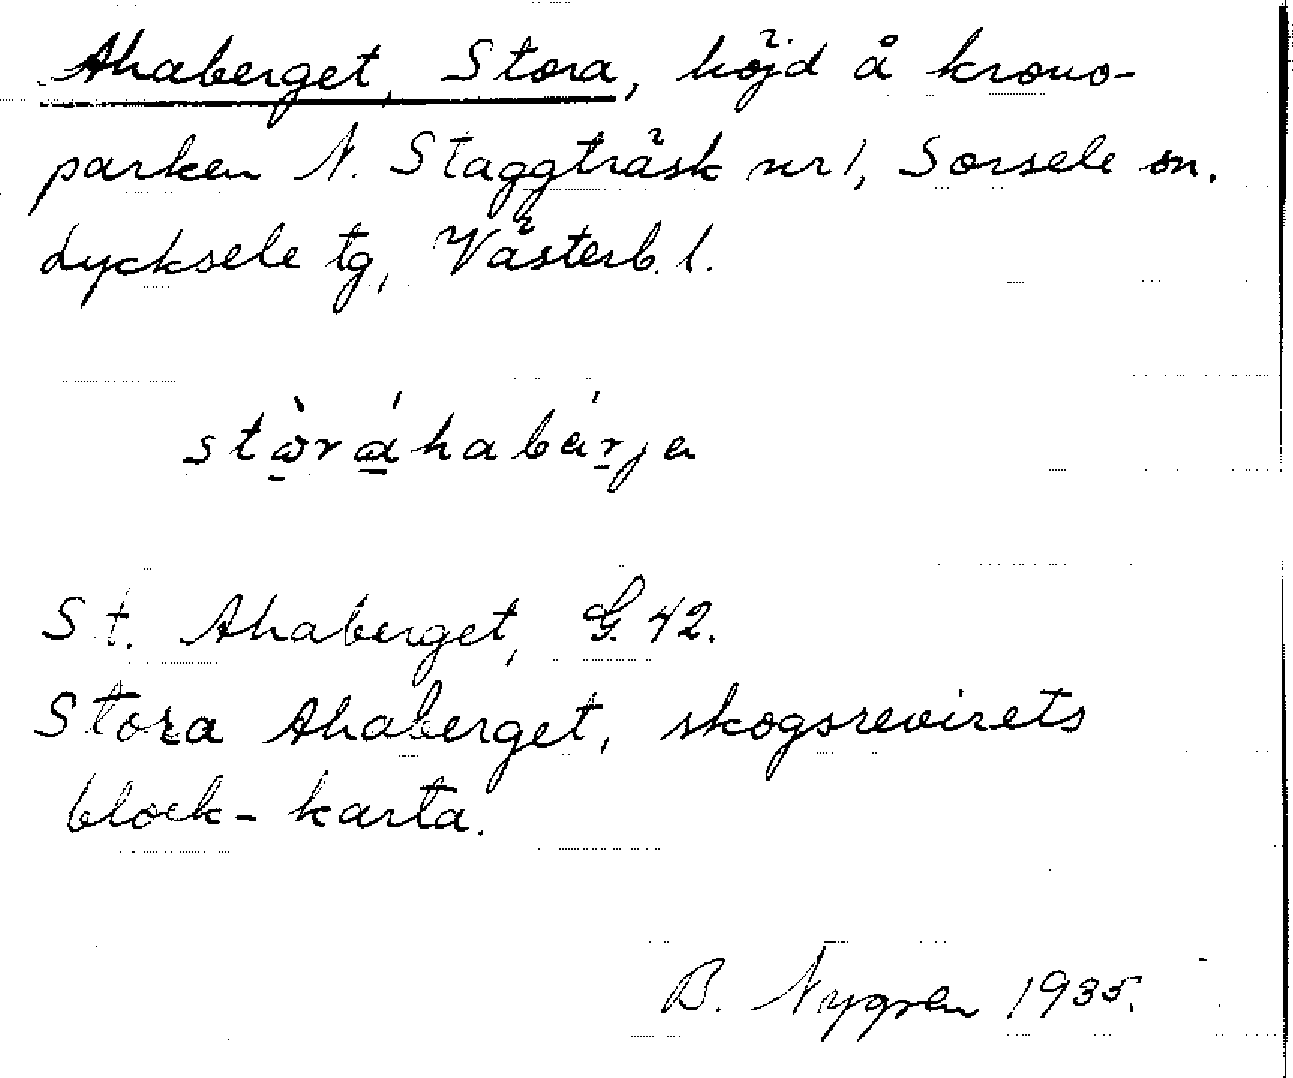 Ahaberget, Stora, höjd å krono-
parken N. Staggträsk nr 1, Sorsele sn.
Lycksele tg, Västerb. l.
stòráhabárja
St. Ahaberget, G. 42.
Stora Ahaberget, skogsrevirets
block-karta.
B. Nygren 1935.